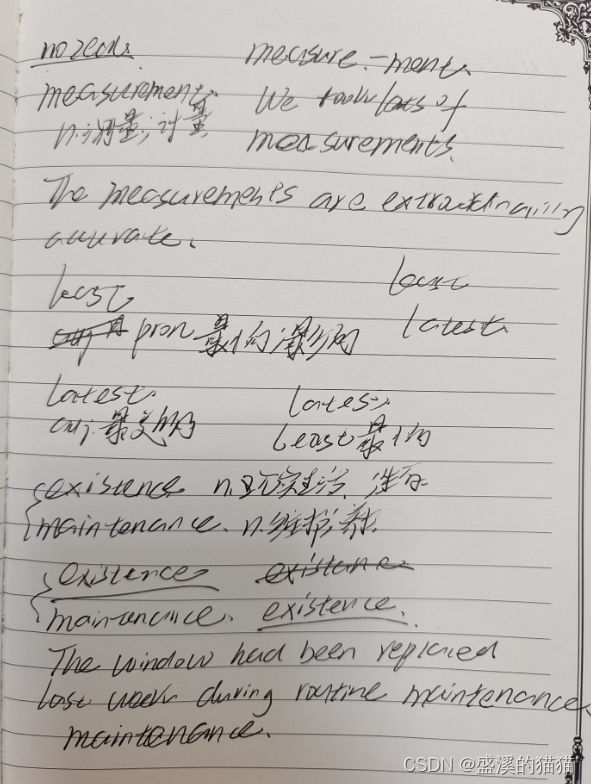 measure.-ment.
measurement.
n.测量；计量
We took lots of
measurements.
The measurements are extraordinarily
accurate.
least
least
pron 最小的 最少的
latest.
latest.
latest.
adj.最近的
least 最小的
existence n. 生活、生存
maintenance. n.维护
existence existance
maintenance. existence.
The window had been replaced
last week during routine maintenance.
maintenance.
CSDN @盛溪的猫猫